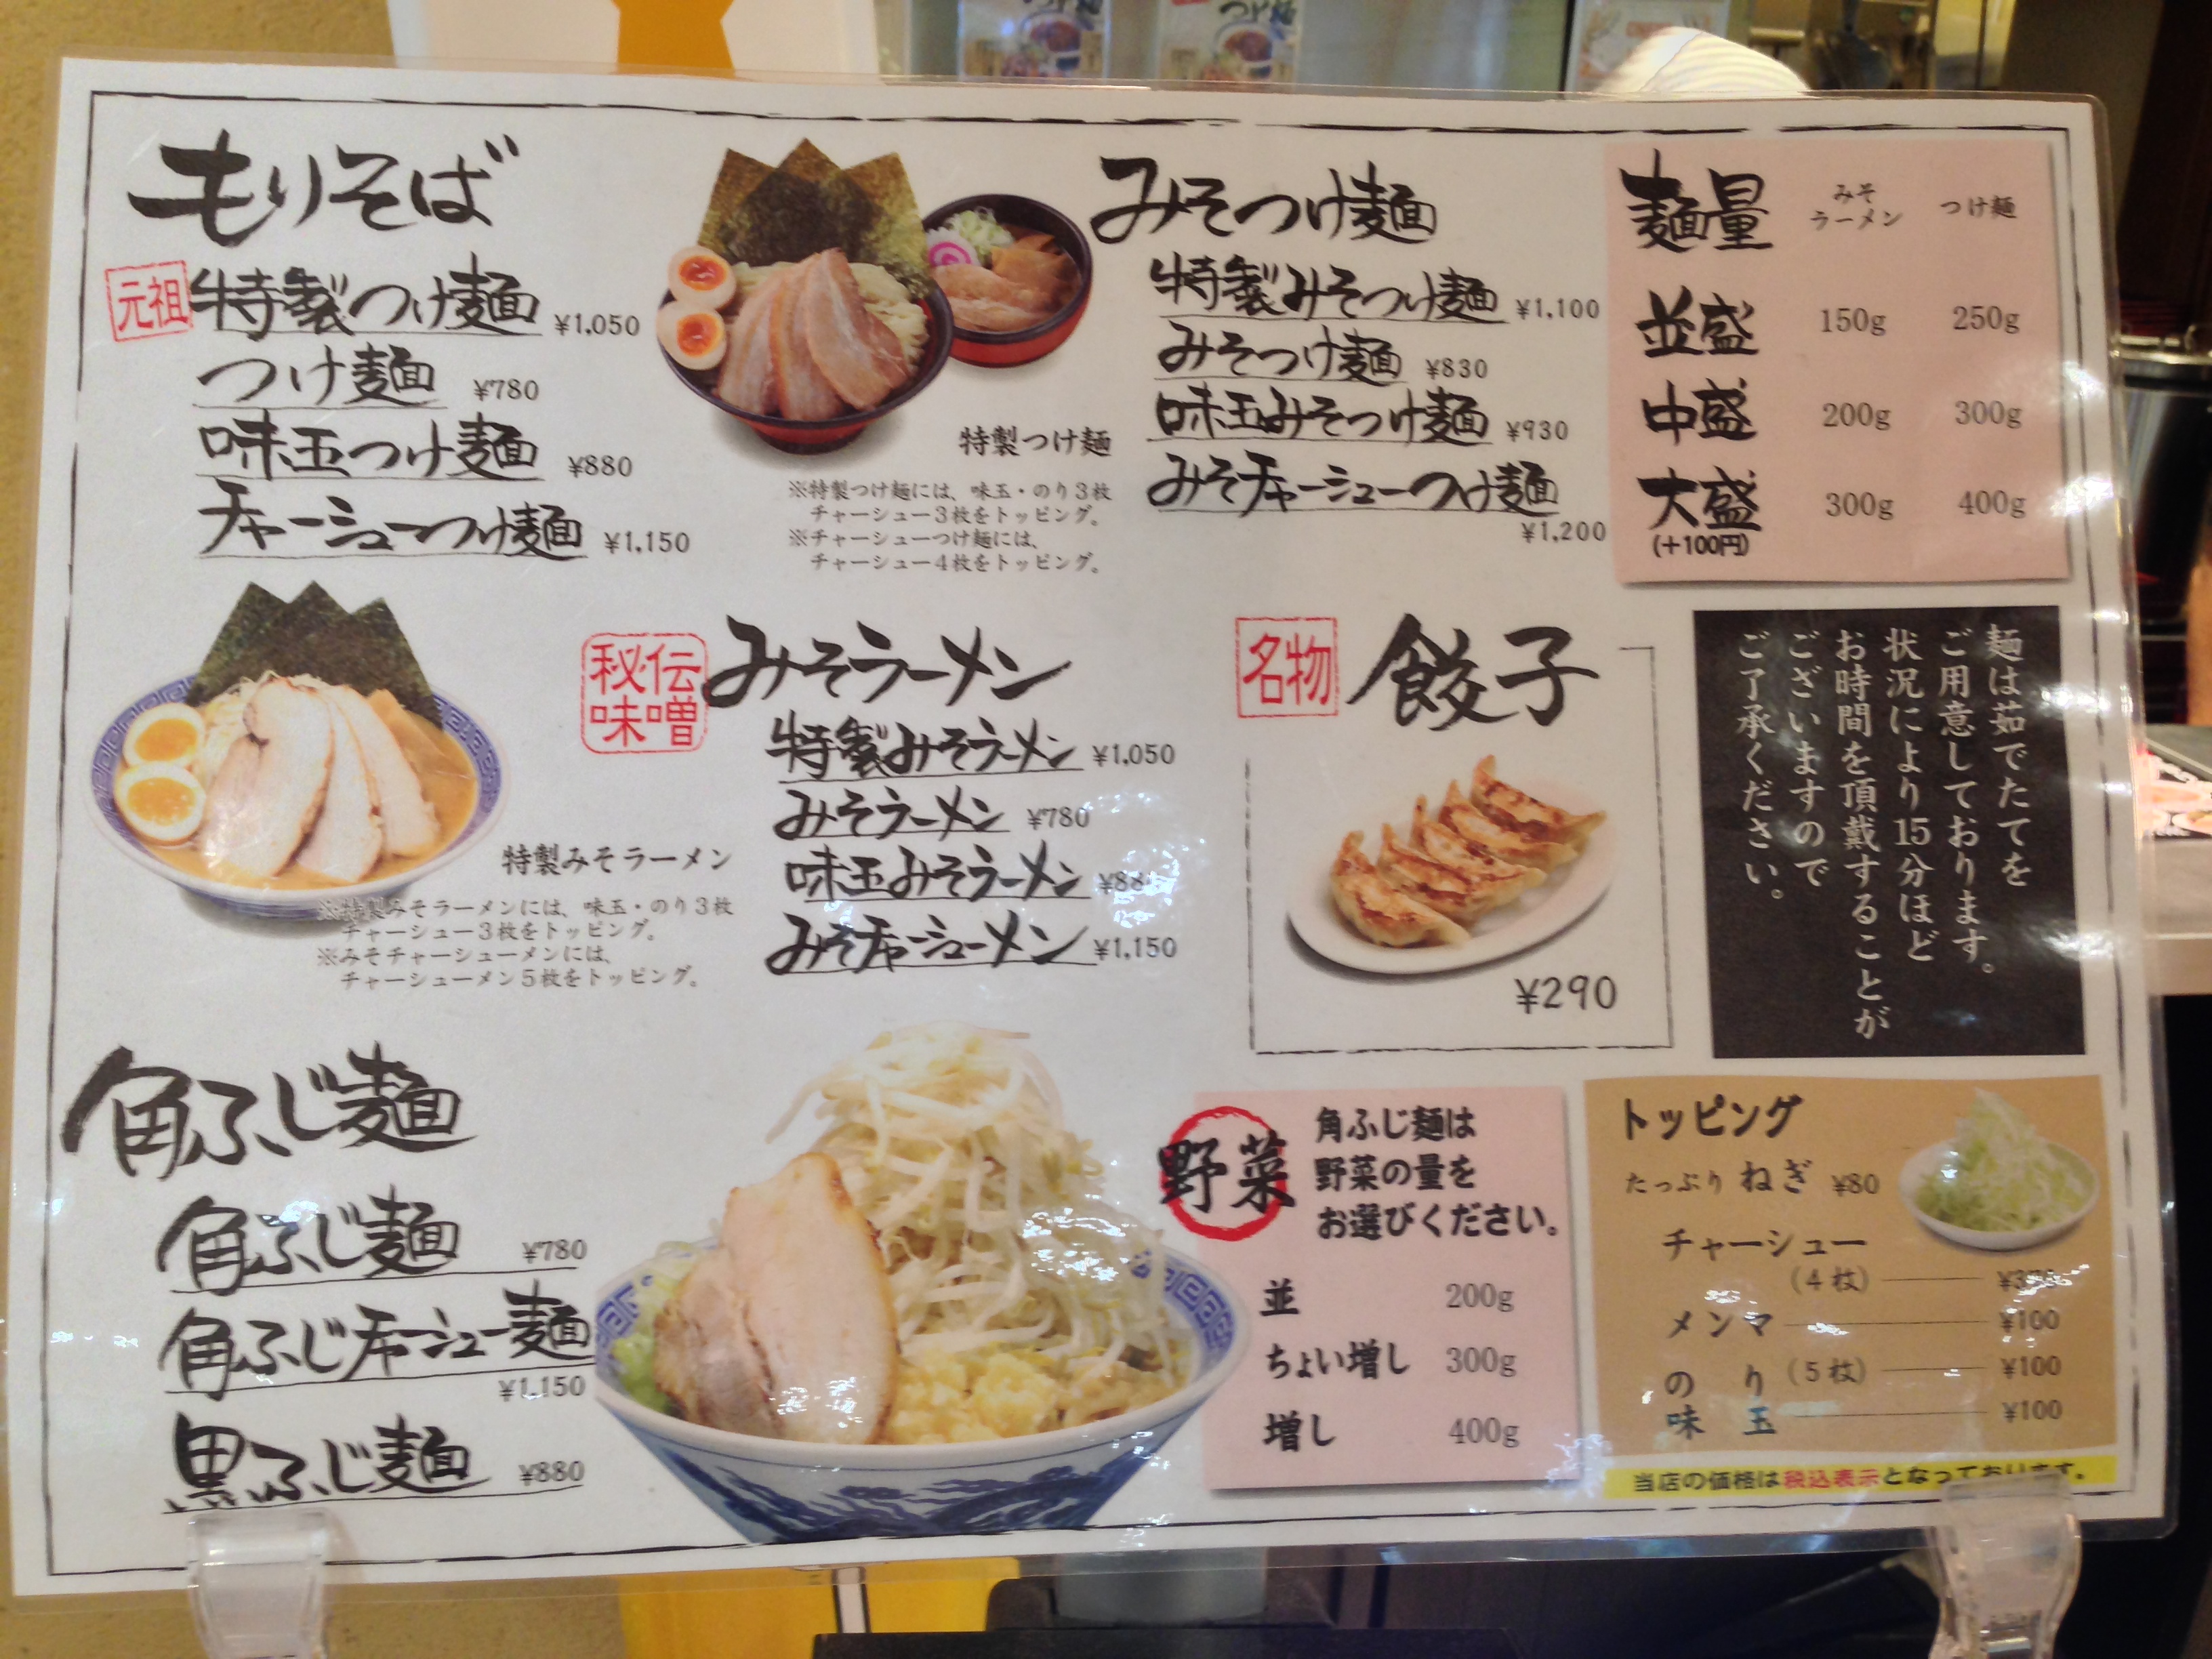 もりそば
元祖
特製つけ麺 ¥1,050
つけ麺 ¥780
味玉つけ麺 ¥880
チャーシューつけ麺 ¥1,150
特製つけ麺
※特製つけ麺には、味玉・のり3枚
チャーシュー3枚をトッピング。
※チャーシューつけ麺には、
チャーシュー4枚をトッピング。
みそつけ麺
特製みそつけ麺 ¥1,100
みそつけ麺 ¥830
味玉みそつけ麺 ¥930
みそチャーシューつけ麺
¥1,200
麺量 みそラーメン つけ麺
並盛 150g 250g
中盛 200g 300g
大盛 300g 400g
(+100円)
秘伝
味噌
みそラーメン
特製みそラーメン ¥1,050
みそラーメン ¥780
味玉みそラーメン
みそチャーシューメン ¥1,150
特製みそラーメン
※特製みそラーメンには、味玉・のり3枚
チャーシュー3枚をトッピング。
※みそチャーシューメンには、
チャーシューメン5枚をトッピング。
名物
餃子
¥290
麺は茹でたてを
ご用意しております。
状況により15分ほど
お時間を頂戴することが
ございますので
ご了承ください。
角ふじ麺
角ふじ麺 ¥780
角ふじチャーシュー麺
¥1,150
黒ふじ麺 ¥880
野菜
角ふじ麺は
野菜の量を
お選びください。
並 200g
ちょい増し 300g
増し 400g
トッピング
たっぷりねぎ ¥80
チャーシュー
(4枚)
メンマ ¥100
のり(5枚) ¥100
味玉 ¥100
当店の価格は税込表示となっております。